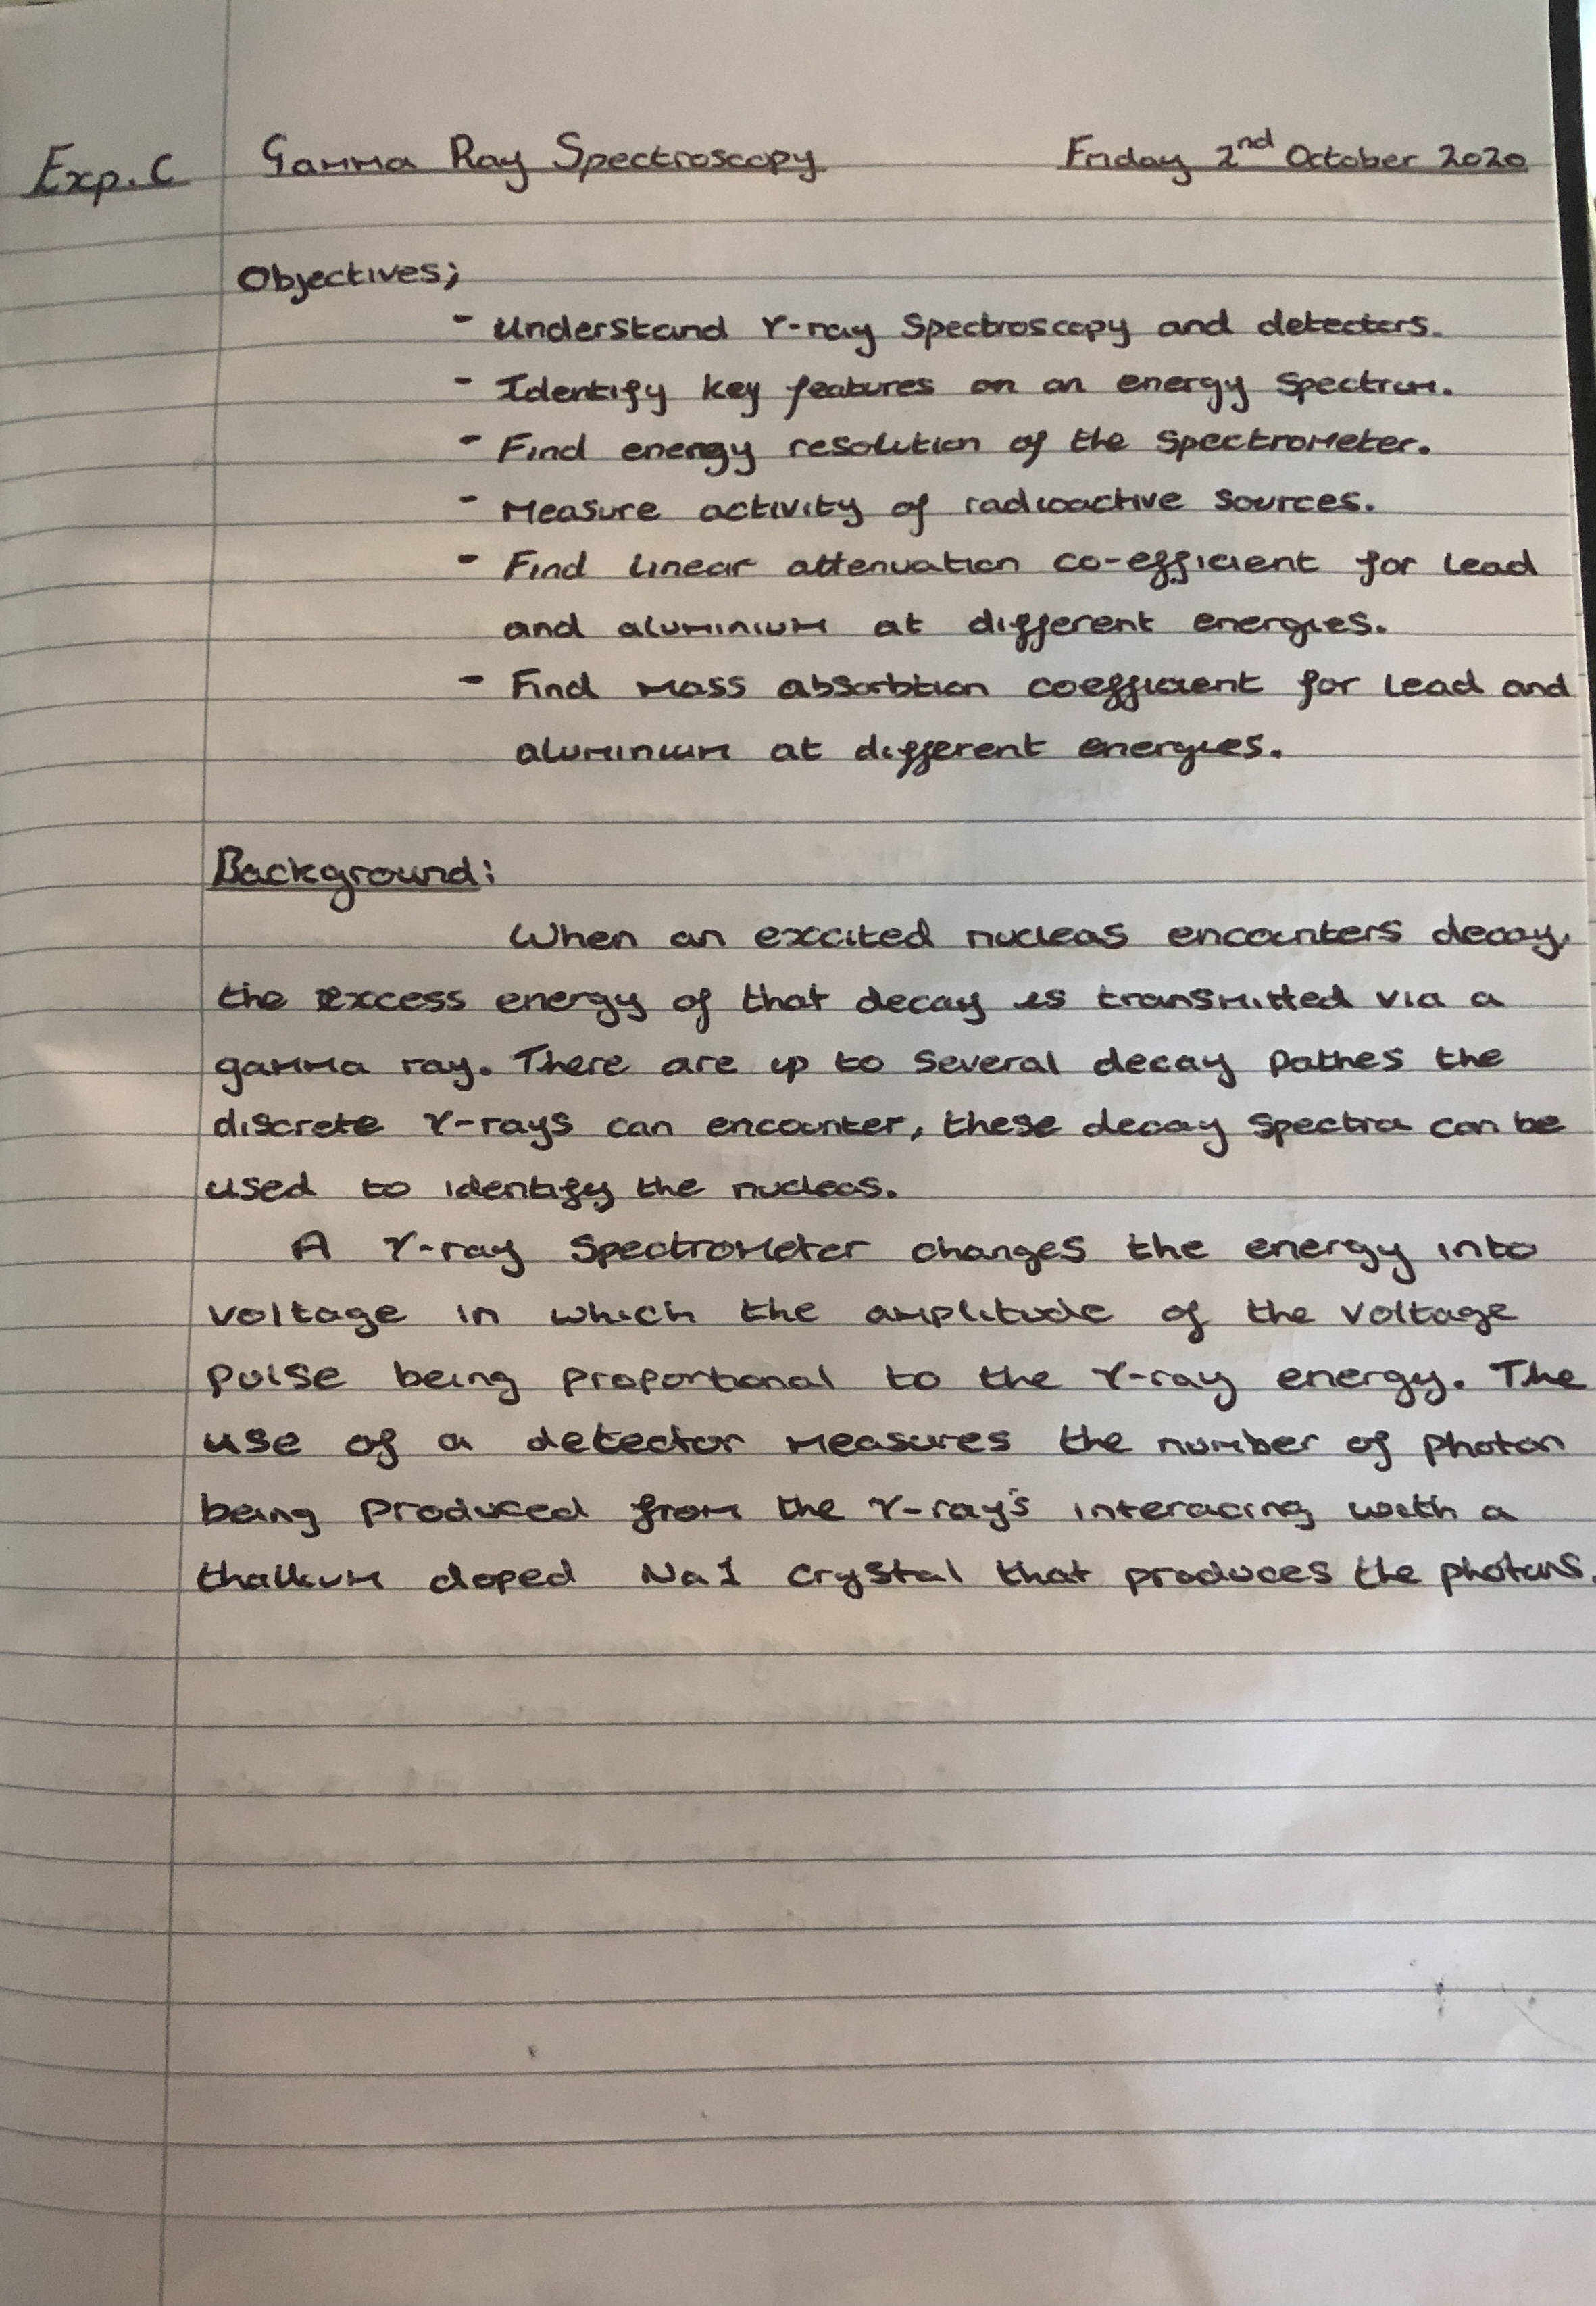 Exp. C Gamma Ray Spectroscopy Friday 2nd October 2020
Objectives;
- Understand γ-ray Spectroscopy and detectors.
- Identify key features on an energy spectrum.
- Find energy resolution of the spectrometer.
- Measure activity of radioactive sources.
- Find linear attenuation co-efficient for lead
and aluminium at different energies.
- Find mass absorbtion coefficient for lead and
aluminium at different energies.
Background:
When an excited nucleas encounters decay,
the excess energy of that decay is transmitted via a
gamma ray. There are up to several decay pathes the
discrete γ-rays can encounter, these decay spectra can be
used to identify the nucleas.
A γ-ray spectrometer changes the energy into
voltage in which the amplitude of the voltage
pulse being proportional to the γ-ray energy. The
use of a detector measures the number of photon
being produced from the γ-ray's interacing with a
thallium doped NaI crystal that produces the photons.